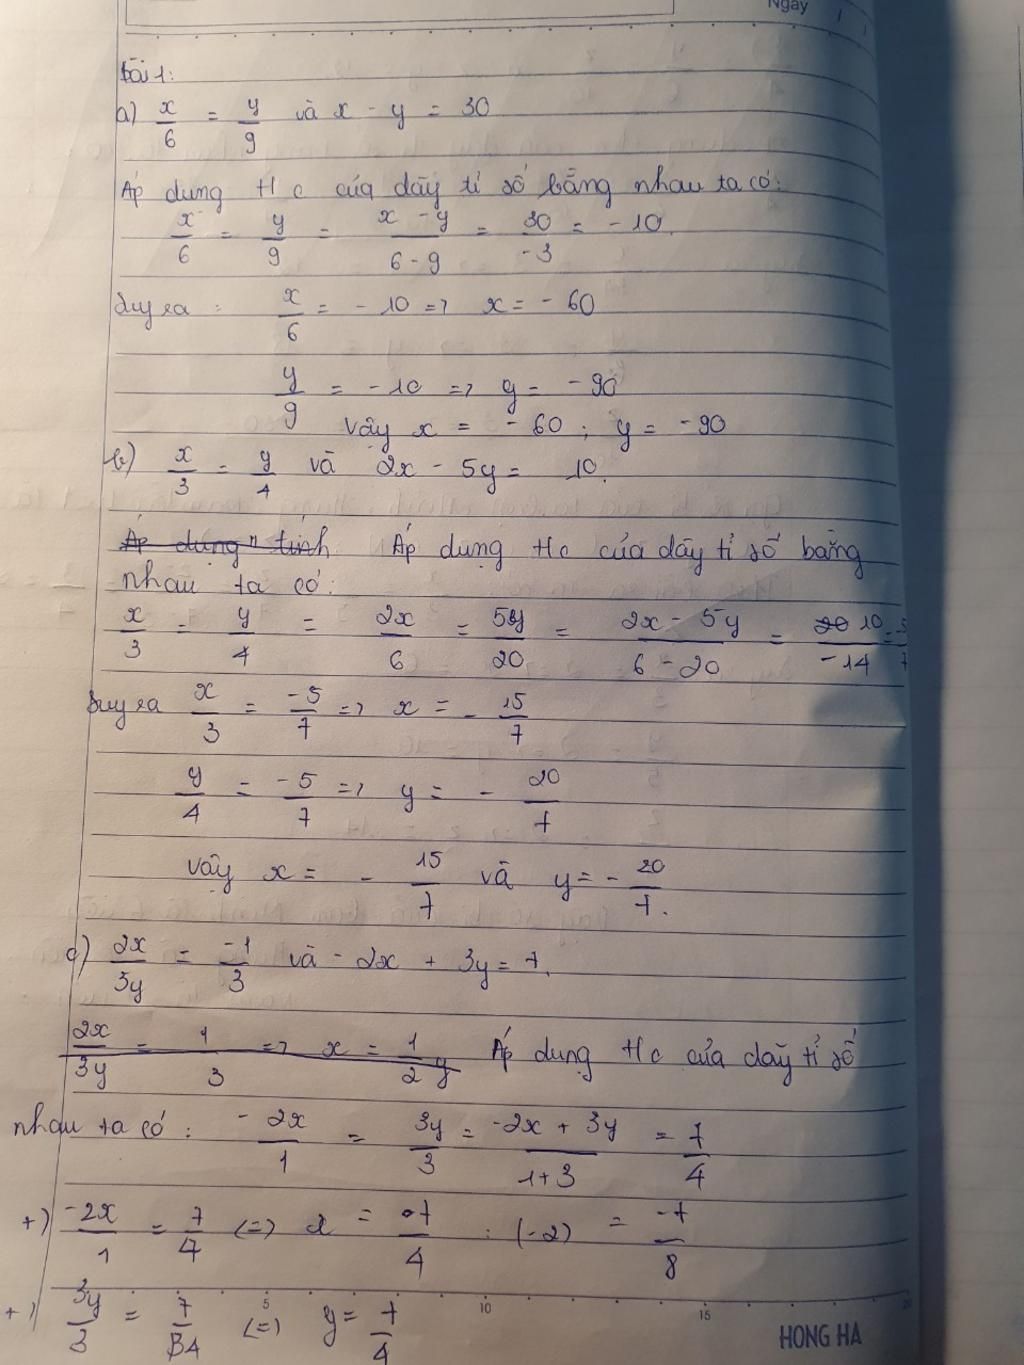 Ngày / /
Bài 1:
a) x/6 = y/9 và x - y = 30
Áp dụng t/c của dãy tỉ số bằng nhau ta có:
x/6 = y/9 = (x - y)/(6 - 9) = 30/-3 = -10.
Suy ra : x/6 = -10 => x = -60
y/9 = -10 => y = -90
Vậy x = -60 ; y = -90
b) x/3 = y/4 và 2x - 5y = 10.
Áp dụng tính Áp dụng t/c của dãy tỉ số bằng
nhau ta có:
x/3 = y/4 = 2x/6 = 5y/20 = (2x - 5y)/(6 - 20) = 10/-14 = -5/7
Suy ra x/3 = -5/7 => x = -15/7
y/4 = -5/7 => y = -20/7
Vậy x = -15/7 và y = -20/7.
c) 2x/3y = -1/3 và -2x + 3y = 7.
2x/3y = 1/3 => x = 1/2 y Áp dụng t/c của dãy tỉ số
nhau ta có : -2x/1 = 3y/3 = (-2x + 3y)/(1 + 3) = 7/4
+) -2x/1 = 7/4 (=) x = 7/4 : (-2) = -7/8
+) 3y/3 = 7/4 (=) y = 7/4
5 10 15
HONG HA